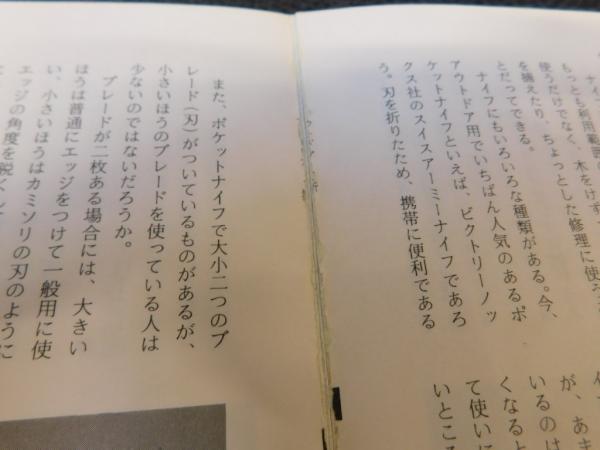 ナイフ
もっとも利用範囲の
使うだけでなく、木をけず
を捕えたり、ちょっとした修理に使う
とだってできる。
ナイフにもいろいろな種類がある。今、
アウトドア用でいちばん人気のあるポ
ケットナイフといえば、ビクトリーノッ
クス社のスイスアーミーナイフであろ
う。刃を折りたため、携帯に便利である
が、あま
いるのは
くなると
て使いに
いところ
また、ポケットナイフで大小二つのブ
レード（刃）がついているものがあるが、
小さいほうのブレードを使っている人は
少ないのではないだろうか。
ブレードが二枚ある場合には、大きい
ほうは普通にエッジをつけて一般用に使
い、小さいほうはカミソリの刃のように
エッジの角度を鋭くし